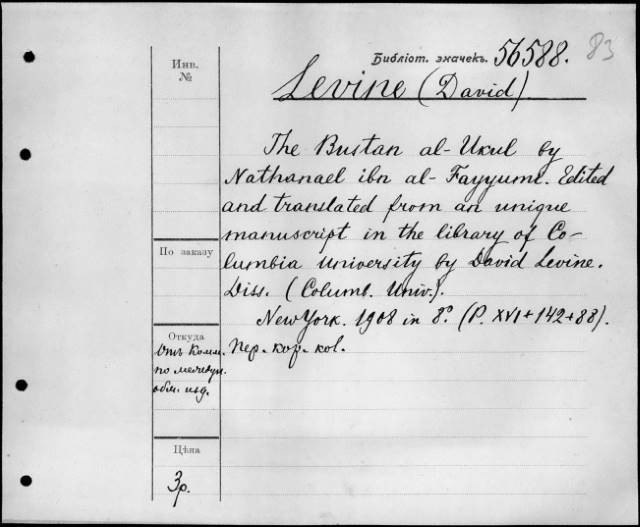 Инв. №
Библіот. значекъ. 56588. 83
Levine (David)
The Bustan al-Ukul by
Nathanael ibn al-Fayyumi. Edited
and translated from an unique
manuscript in the library of Co-
lumbia University by David Levine.
Diss. (Columb. Univ.).
New York. 1908 in 8º. (P. XVI+142+88).
По заказу
Откуда
Отъ Комм.
по междун.
обм. изд.
Пер. кор. kol.
Цѣна
3р.